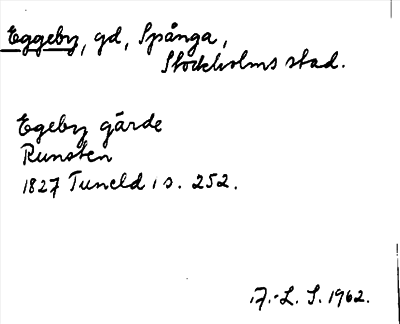 Eggeby, gd, Spånga,
Stockholms stad.
Egeby gärde
Runsten
1827 Tuneld, s. 252.
A.-L. S. 1962.